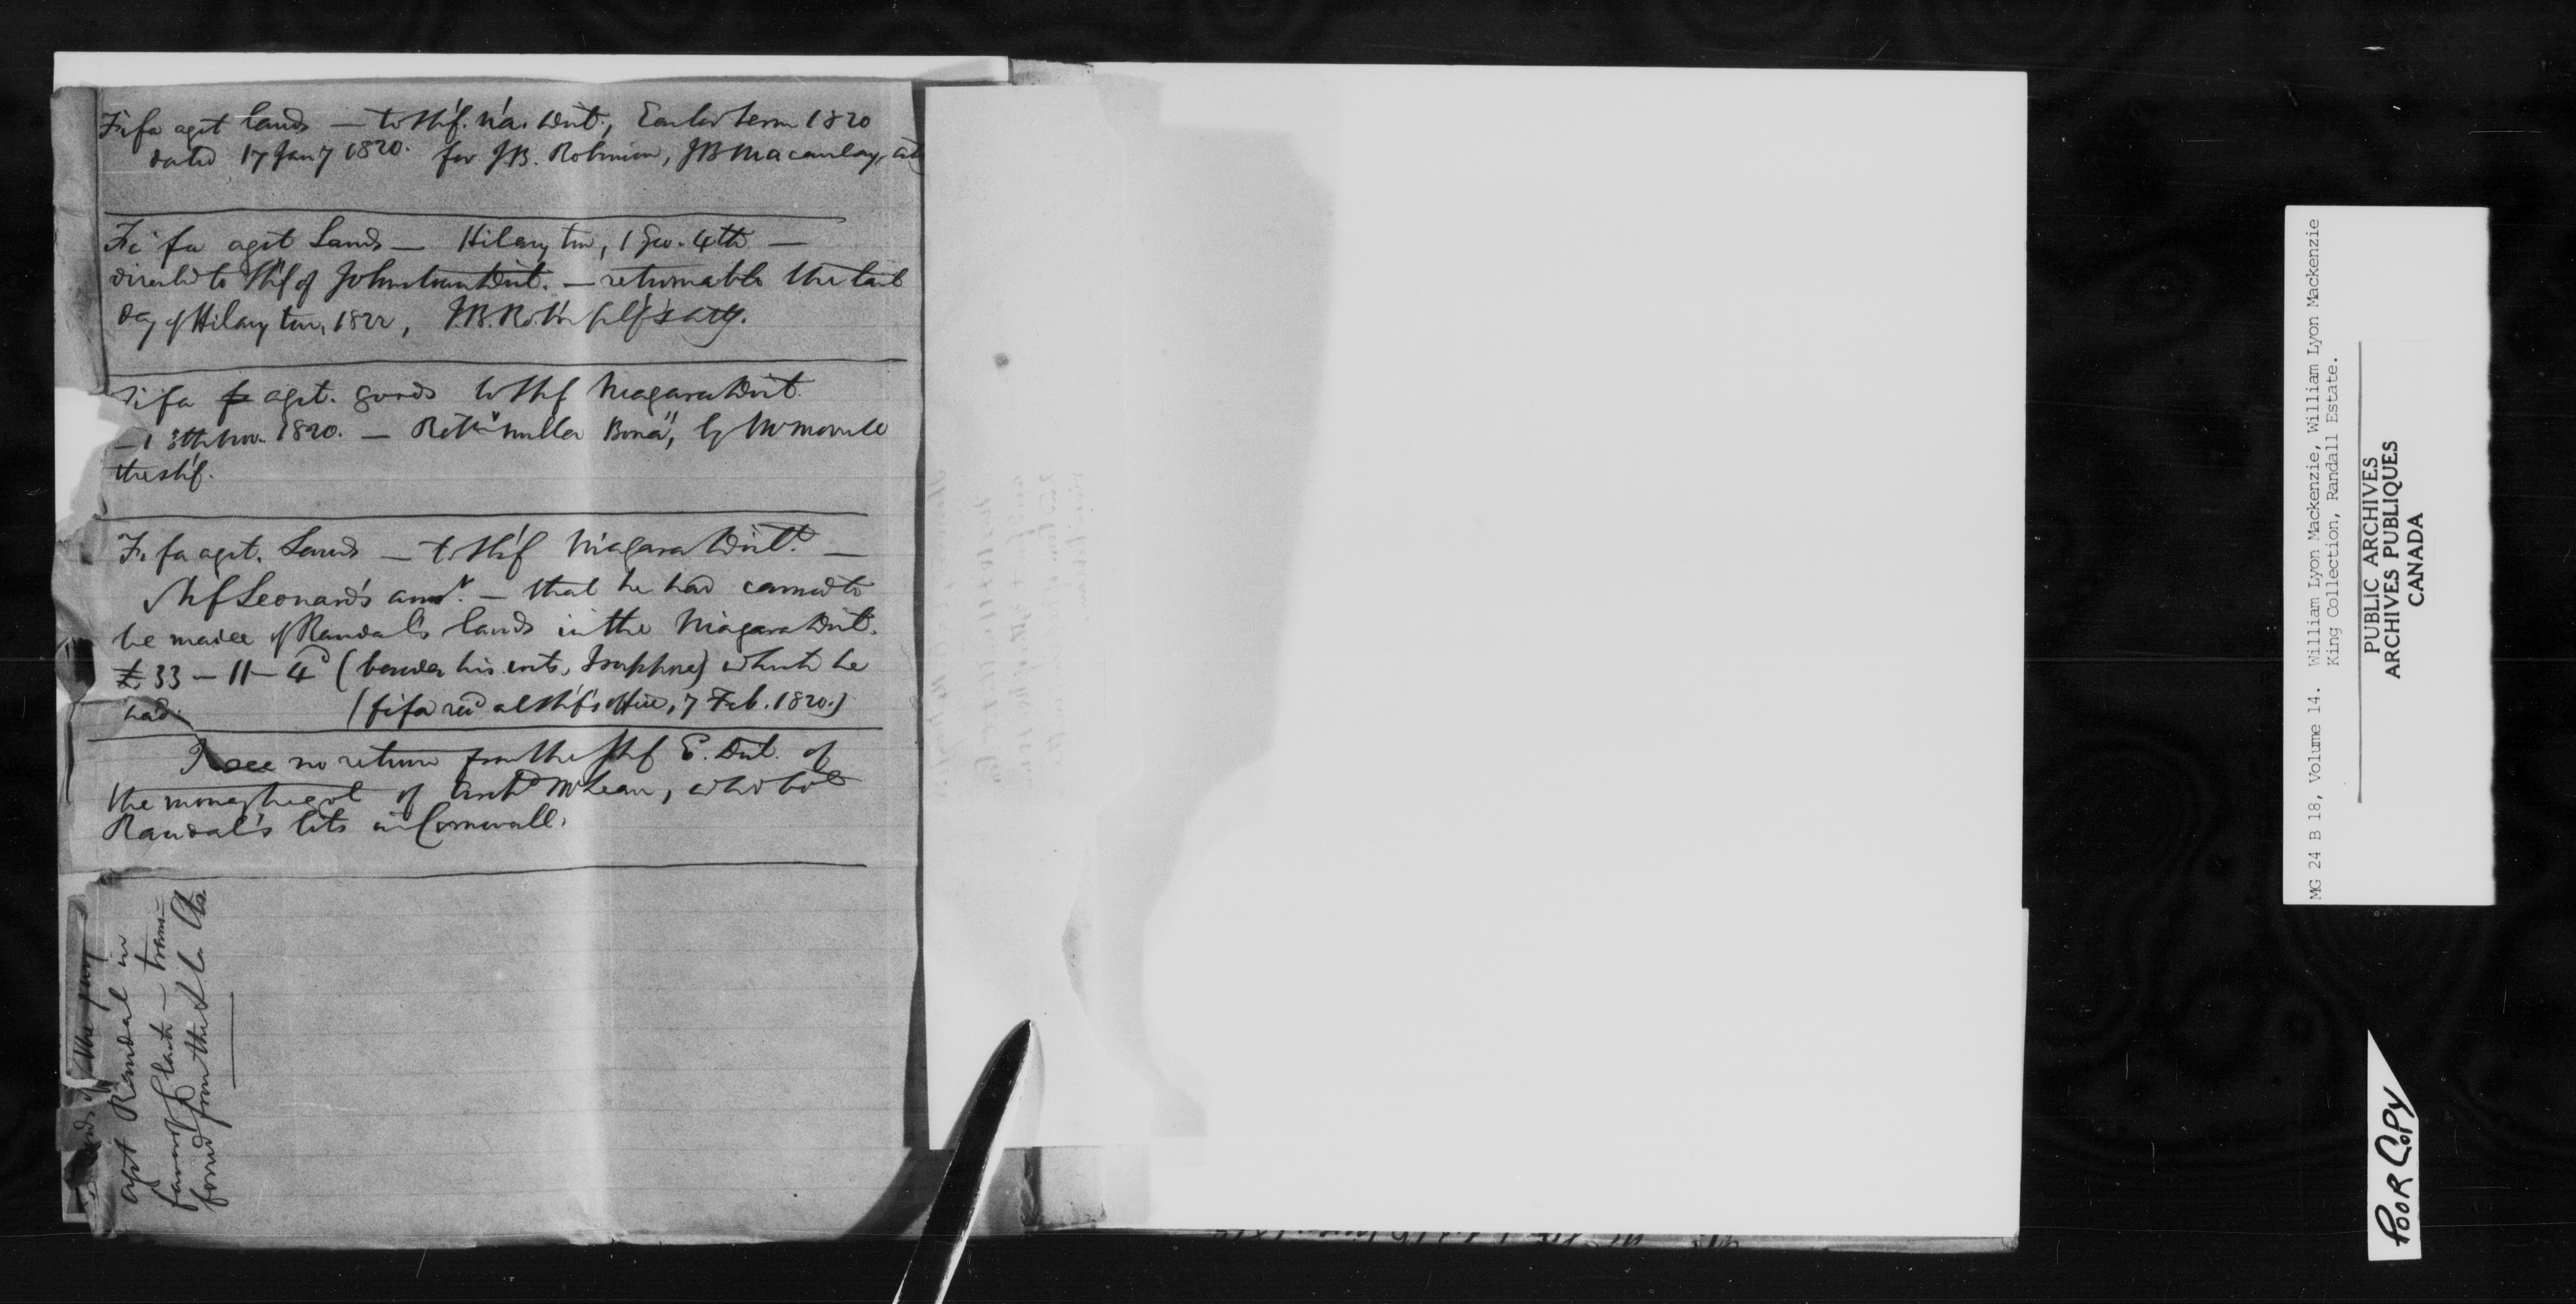 Fi fa agst lands — to Shf. Nia. Dist., Easter term 1820
dated 17 Jany 1820. for J.B. Robinson, JB Macaulay, atty
Fi fa agst Lands — Hilary tm, 1 Geo. 4th —
directed to Shf of Johnstown Dist. — returnable the last
day of Hilary tm, 1822, J.B. Rob'n plf's atty.
fi fa agst. goods to Shf Niagara Dist.
— 13th Nov. 1820. — Retd "nulla Bona", by
the Shf.
Fi fa agst. Lands — to Shf Niagara Dist. —
Shf Leonard's ansr. — that he had caused to
be made of Randal's lands in the Niagara Dist.
£33 — 11 — 4d (besides his costs, I suppose) which he
had. (fi fa recd at Shf's office, 7 Feb. 1820.)
I see no return from the Shf E. Dist. of
the money he got of Archd McLean, who bot
Randal's lots in Cornwall.
of the
agst Randal in
favor of — trans-
ferred from the
MG 24 B 18, Volume 14. William Lyon Mackenzie, William Lyon Mackenzie
King Collection, Randall Estate.
PUBLIC ARCHIVES
ARCHIVES PUBLIQUES
CANADA
POOR COPY